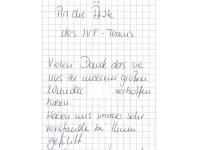 An die Ärzte
des IVF-Teams
Vielen Dank das sie
uns zu unserem großen
Wunder verholfen
haben.
Haben uns immer sehr
verstanden bei Ihnen
gefühlt